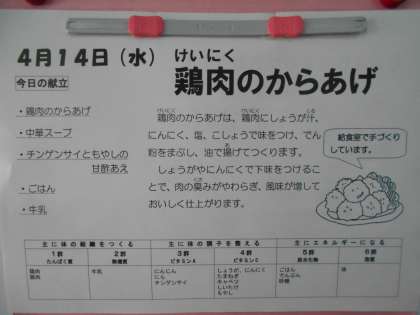 4月14日（水）
けいにく
鶏肉のからあげ
今日の献立
・鶏肉のからあげ
・中華スープ
・チンゲンサイともやしの
甘酢あえ
・ごはん
・牛乳
鶏肉のからあげは、鶏肉にしょうが汁、
にんにく、塩、こしょうで味をつけ、でん
粉をまぶし、油で揚げてつくります。
しょうがやにんにくで下味をつけるこ
とで、肉の臭みがやわらぎ、風味が増して
おいしく仕上がります。
給食室で手づくり
しています。
主に体の組織をつくる 主に体の調子を整える 主にエネルギーになる
1群 2群 3群 4群 5群 6群
たんぱく質 無機質 ビタミンA ビタミンC 炭水化物 脂質
鶏肉 牛乳 にんじん しょうが、にんにく ごはん 油
にら たまねぎ でんぷん
チンゲンサイ キャベツ 砂糖
しいたけ
もやし